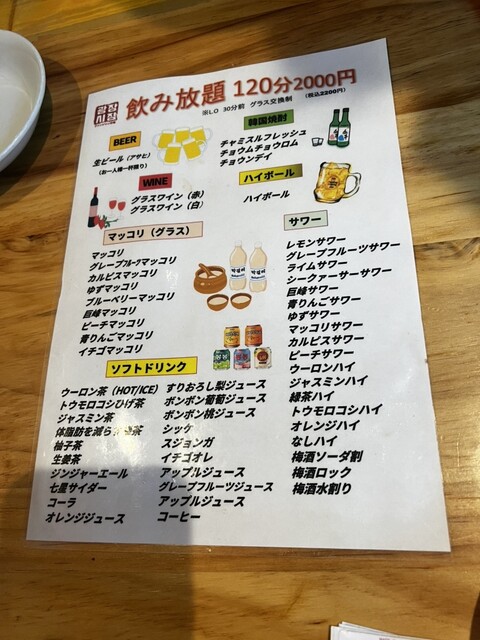 광장
시장
飲み放題 120分2000円
※L.O 30分前 グラス交換制 (税込2200円)
BEER
生ビール (アサヒ)
(お一人様一杯限り)
韓国焼酎
チャミスルフレッシュ
チョウムチョウロム
チョウンデイ
WINE
グラスワイン (赤)
グラスワイン (白)
ハイボール
ハイボール
マッコリ (グラス)
マッコリ
グレープフルーツマッコリ
カルピスマッコリ
ゆずマッコリ
ブルーベリーマッコリ
巨峰マッコリ
ピーチマッコリ
青りんごマッコリ
イチゴマッコリ
サワー
レモンサワー
グレープフルーツサワー
ライムサワー
シークァーサーサワー
巨峰サワー
青りんごサワー
ゆずサワー
マッコリサワー
カルピスサワー
ピーチサワー
ウーロンハイ
ジャスミンハイ
緑茶ハイ
トウモロコシハイ
オレンジハイ
なしハイ
梅酒ソーダ割
梅酒ロック
梅酒水割り
ソフトドリンク
ウーロン茶 (HOT/ICE)
トウモロコシひげ茶
ジャスミン茶
体脂肪を減らす 茶
柚子茶
生姜茶
ジンジャーエール
七星サイダー
コーラ
オレンジジュース
すりおろし梨ジュース
ボンボン葡萄ジュース
ボンボン桃ジュース
シッケ
スジョンガ
イチゴオレ
アップルジュース
グレープフルーツジュース
アップルジュース
コーヒー